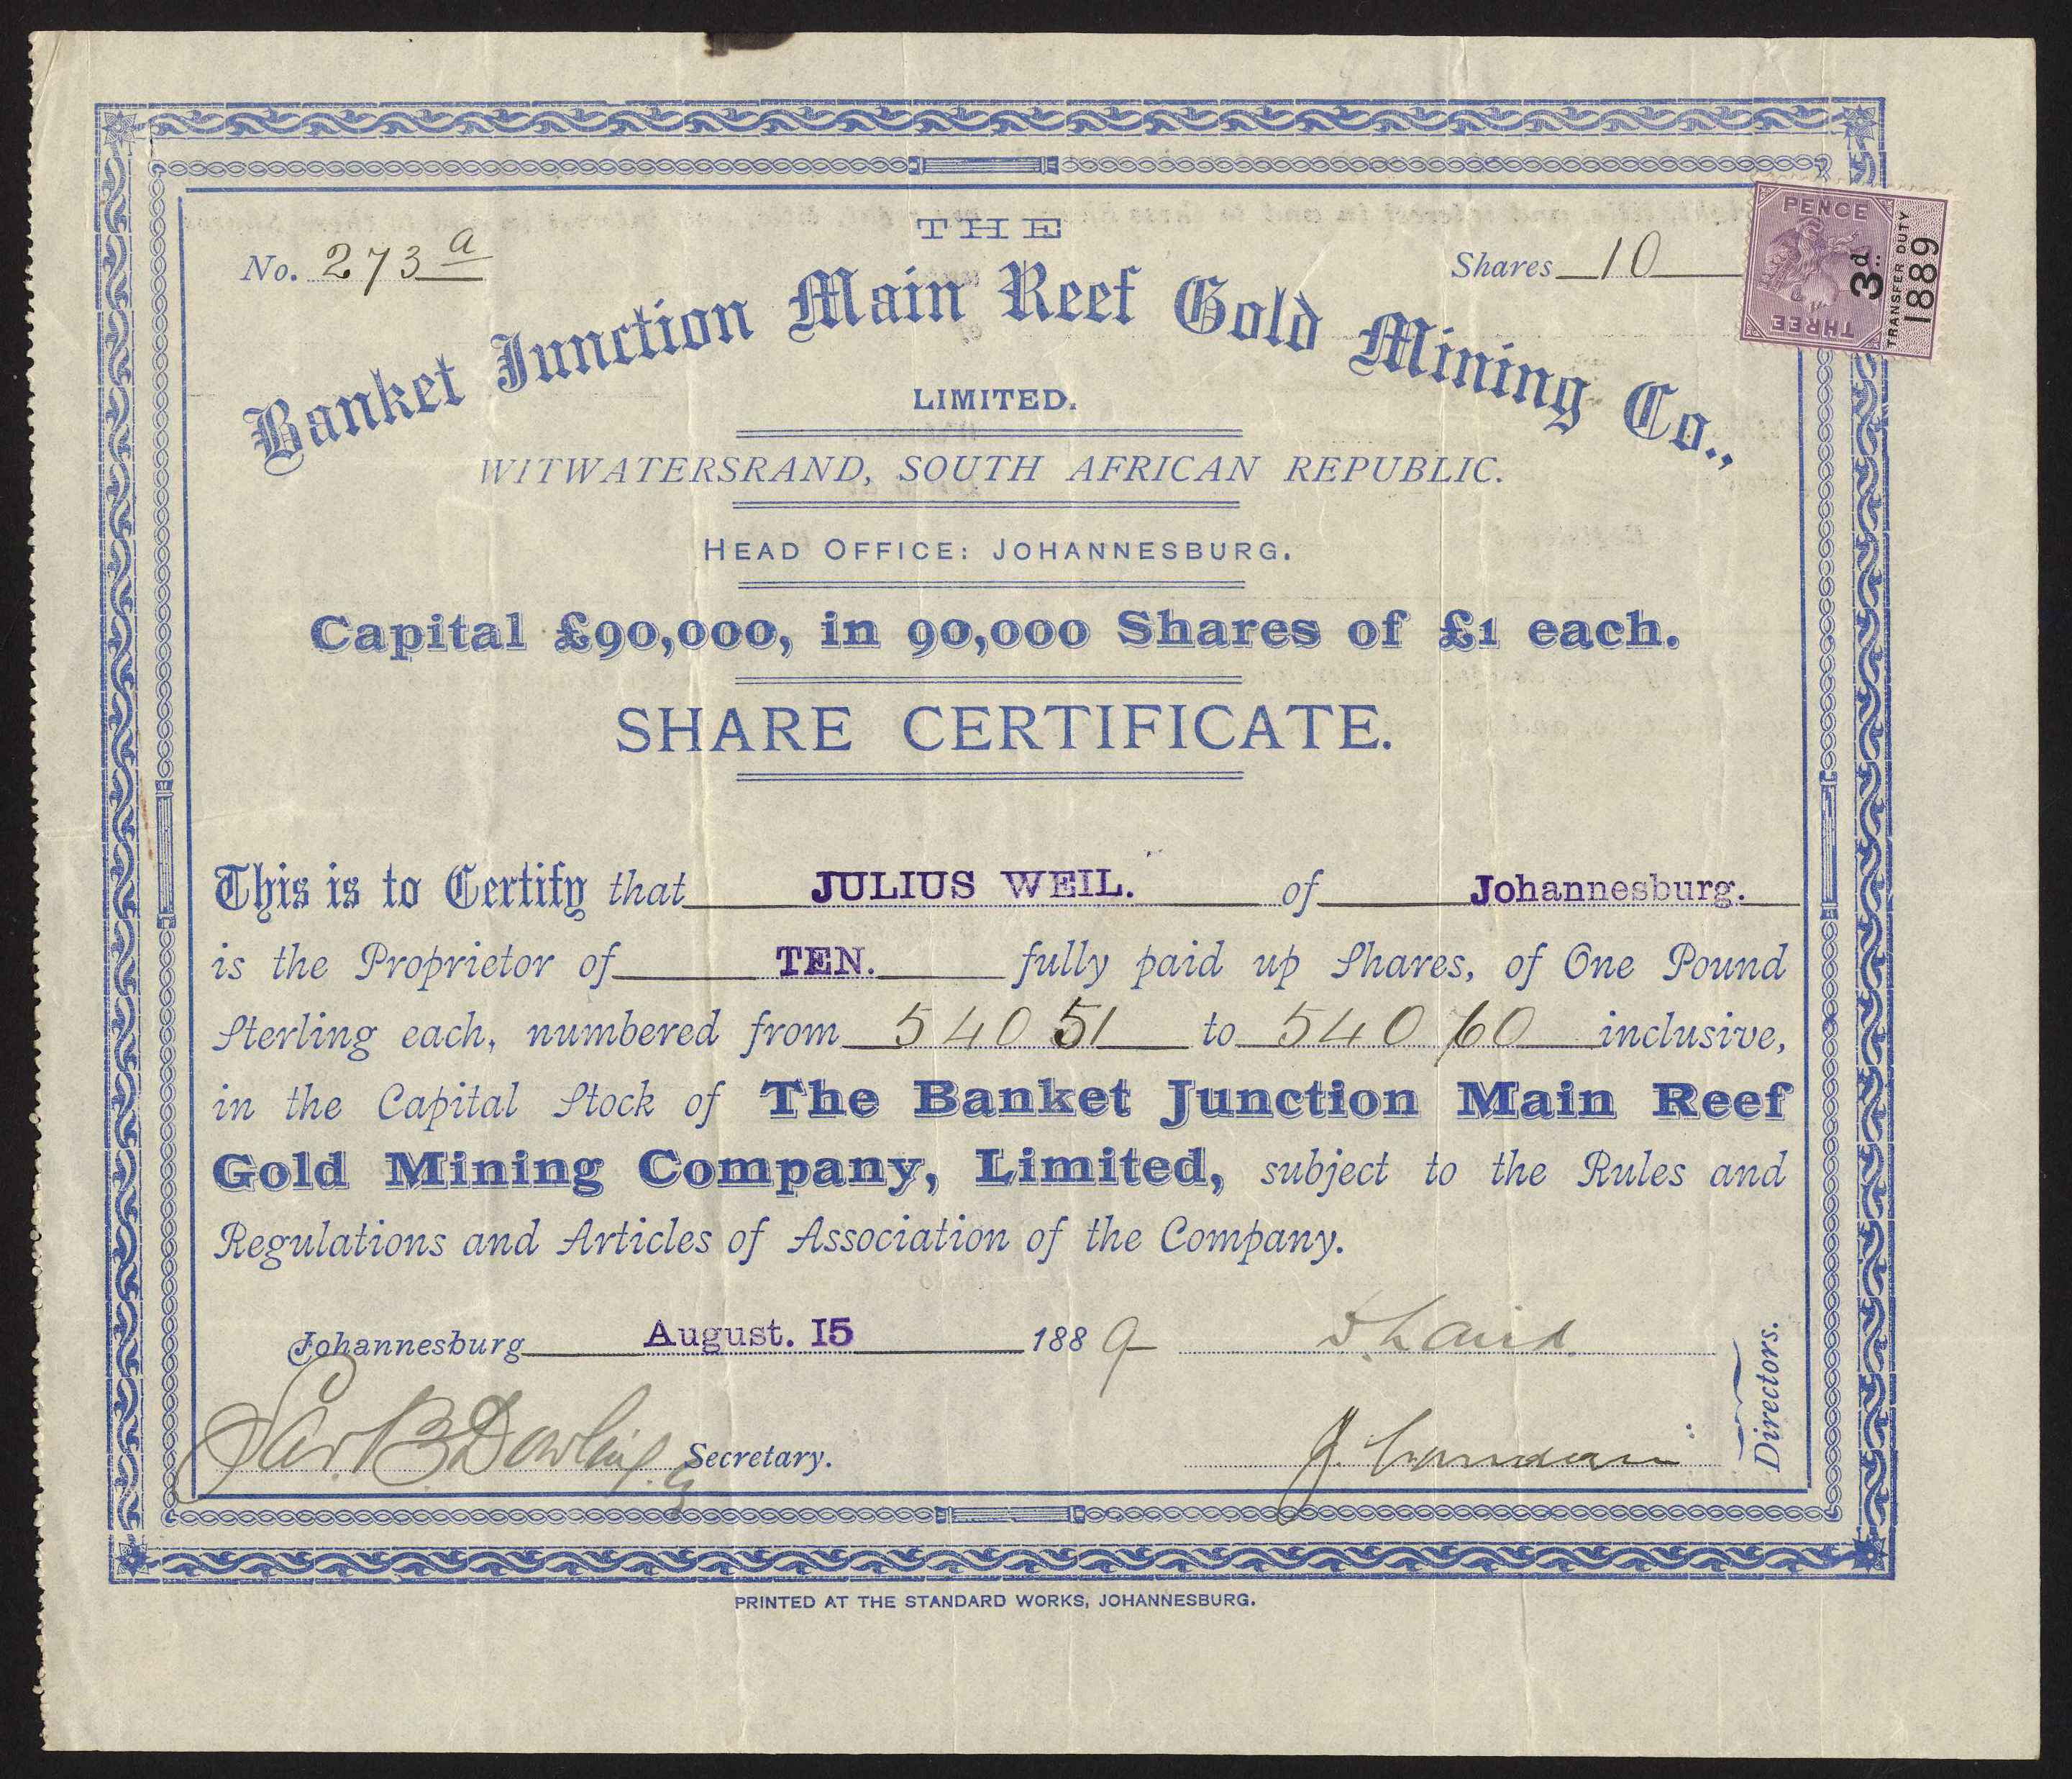 THE
No. 273 a
Shares 10
PENCE
THREE
3d.
TRANSFER DUTY
1889
Banket Junction Main Reef Gold Mining Co.,
LIMITED.
WITWATERSRAND, SOUTH AFRICAN REPUBLIC.
HEAD OFFICE: JOHANNESBURG.
Capital £90,000, in 90,000 Shares of £1 each.
SHARE CERTIFICATE.
This is to Certify that JULIUS WEIL. of Johannesburg.
is the Proprietor of TEN. fully paid up Shares, of One Pound
Sterling each, numbered from 54051 to 54060 inclusive,
in the Capital Stock of The Banket Junction Main Reef
Gold Mining Company, Limited, subject to the Rules and
Regulations and Articles of Association of the Company.
Johannesburg August. 15 1889
D. Laird.
Directors.
B. Dowling Secretary.
PRINTED AT THE STANDARD WORKS, JOHANNESBURG.